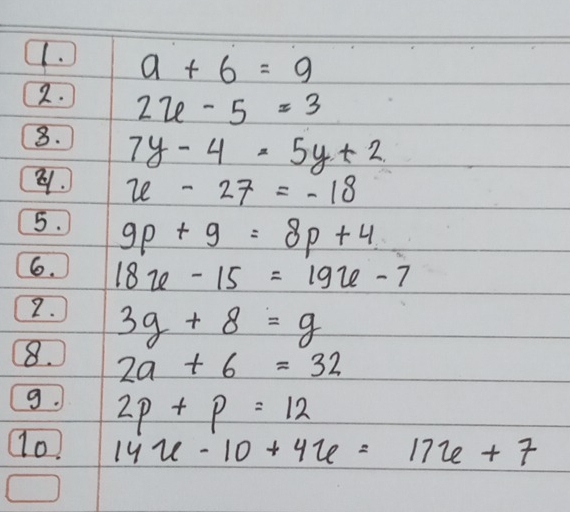 1. a + 6 = 9
2. 2x - 5 = 3
3. 7y - 4 = 5y + 2
4. x - 27 = -18
5. 9p + 9 = 8p + 4
6. 18x - 15 = 19x - 7
7. 3g + 8 = g
8. 2a + 6 = 32
9. 2p + p = 12
10. 14x - 10 + 4x = 17x + 7